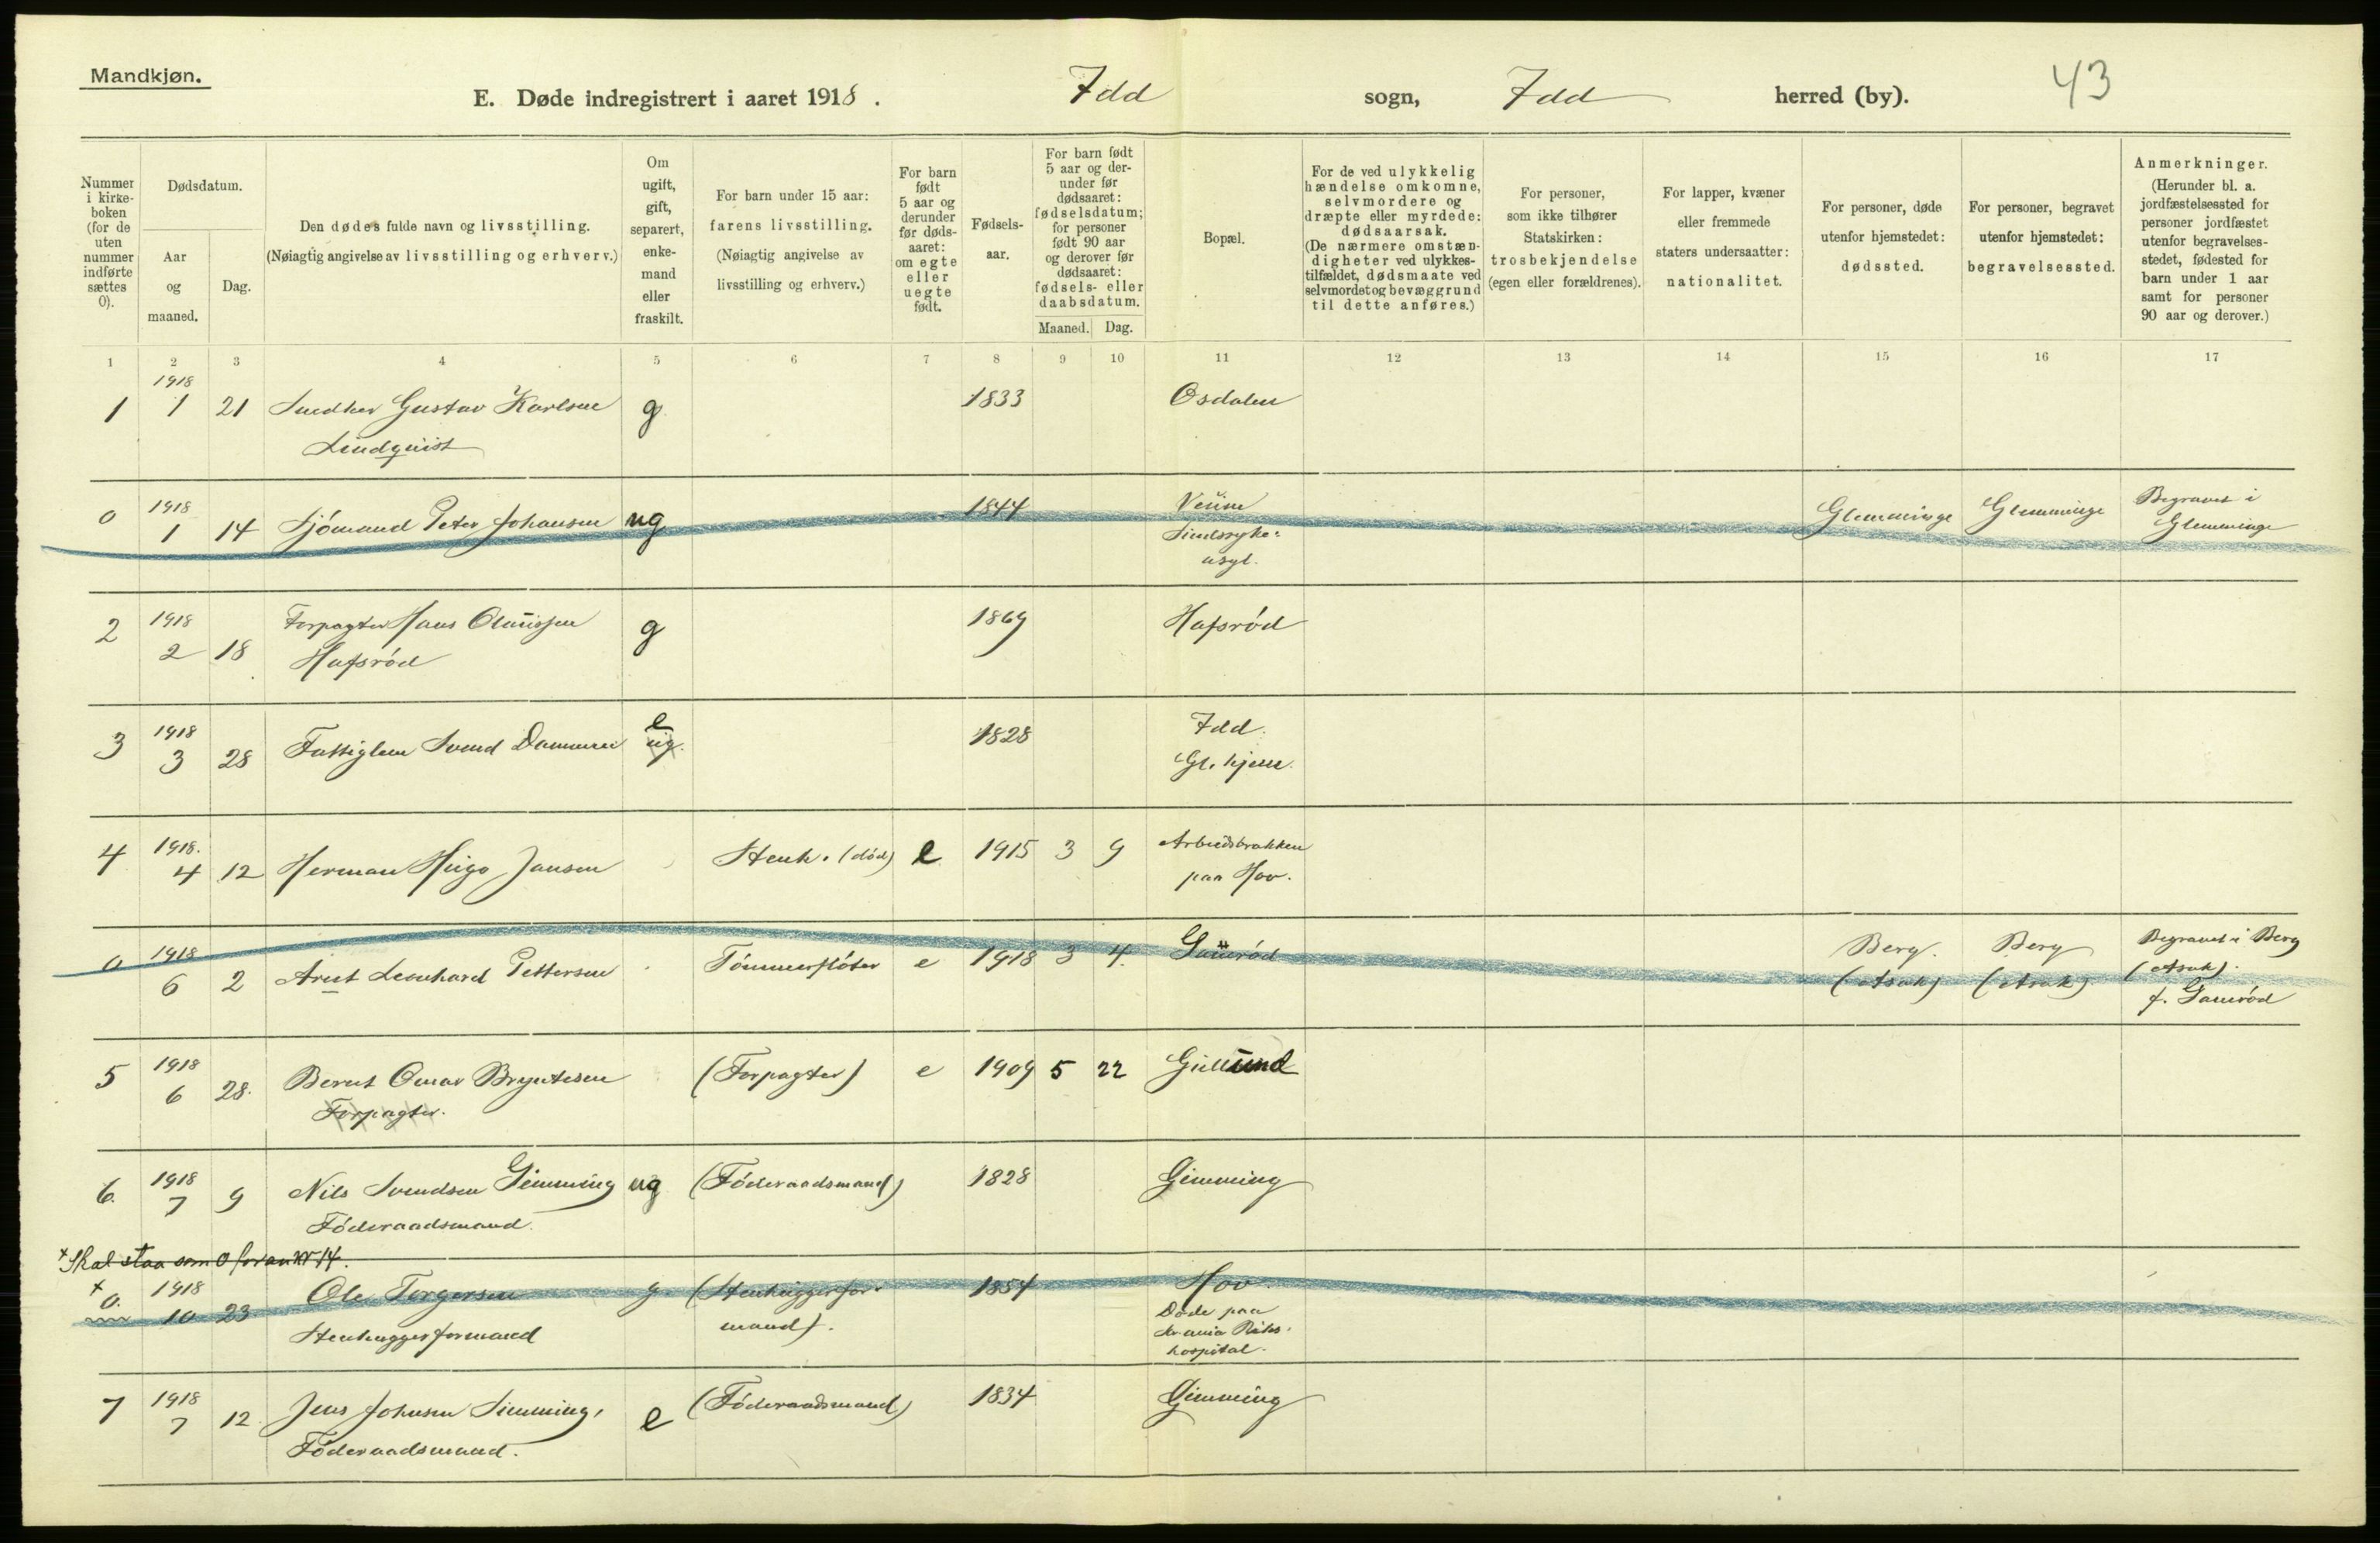 Mandkjøn.
E. Døde indregistrert i aaret 1918. Idd sogn, Idd herred (by). 43
Nummer i kirkeboken (for de uten nummer indførte sættes 0).
Dødsdatum.
Aar og maaned.
Dag.
Den dødes fulde navn og livsstilling.
(Nøiagtig angivelse av livsstilling og erhverv.)
Om ugift, gift, separert, enkemand eller fraskilt.
For barn under 15 aar:
farens livsstilling.
(Nøiagtig angivelse av livsstilling og erhverv.)
For barn født 5 aar og derunder før dødsaaret: om egte eller uegte født.
Fødselsaar.
For barn født 5 aar og derunder før dødsaaret: fødselsdatum; for personer født 90 aar og derover før dødsaaret: fødsels- eller daabsdatum.
Maaned. Dag.
Bopæl.
For de ved ulykkelig hændelse omkomne, selvmordere og dræpte eller myrdede: dødsaarsak.
(De nærmere omstændigheter ved ulykkestilfældet, dødsmaate ved selvmordet og bevæggrund til dette anføres.)
For personer, som ikke tilhører Statskirken: trosbekjendelse (egen eller forældrenes).
For lapper, kvæner eller fremmede staters undersaatter: nationalitet.
For personer, døde utenfor hjemstedet: dødssted.
For personer, begravet utenfor hjemstedet: begravelsessted.
Anmerkninger.
(Herunder bl. a. jordfæstelsessted for personer jordfæstet utenfor begravelsesstedet, fødested for barn under 1 aar samt for personer 90 aar og derover.)
1 2 3 4 5 6 7 8 9 10 11 12 13 14 15 16 17
1918
1 1 21 Gustav Karlsen g 1833 Osdalen
Lindquist
0 1918 1 14 Sjömand Peter Johansen ug 1844 Glemminge Glemminge Begravet i
Sindssyke- Glemminge
asyl.
2 1918 2 18 Forpagter Hans g 1869 Hafsröd
Hafsröd
3 1918 3 28 Svend e ug. 1828 Idd.
Gl. hjem.
4 1918. 4 12 Herman Hugo Jansen Stenh. (död) e 1915 3 9 Arbeidsbrakken
paa Hov.
0 1918 6 2 Arnt Leonhard Pettersen Tömmerflöter e 1918 3 4. Berg. Berg Begravet i Berg
(Asak) (Asak) (Asak).
5 1918 6 28. Bernt Omar Bryntesen (Forpagter) e 1909 5 22
Forpagter.
6. 1918 7 9 Nils Svendsen Gimming ug (Föderaadsmand) 1828 Gimming
Föderaadsmand.
x Skal staa som 0 foran Nr 14.
x 0. 1918 10 23 Ole Torgersen g (Stenhuggerfor- 1854 Hov.
Stenhuggerformand mand). Döde paa
Kr.ania Riks-
hospital.
7 1918 7 12 Jens Johnsen e (Föderaadsmand) 1834 Gimming
Föderaadsmand.